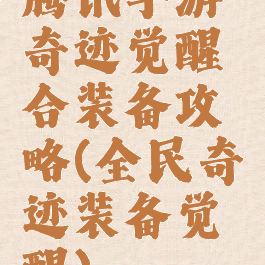 腾讯手游
奇迹觉醒
合装备攻
略(全民奇
迹装备觉
醒)